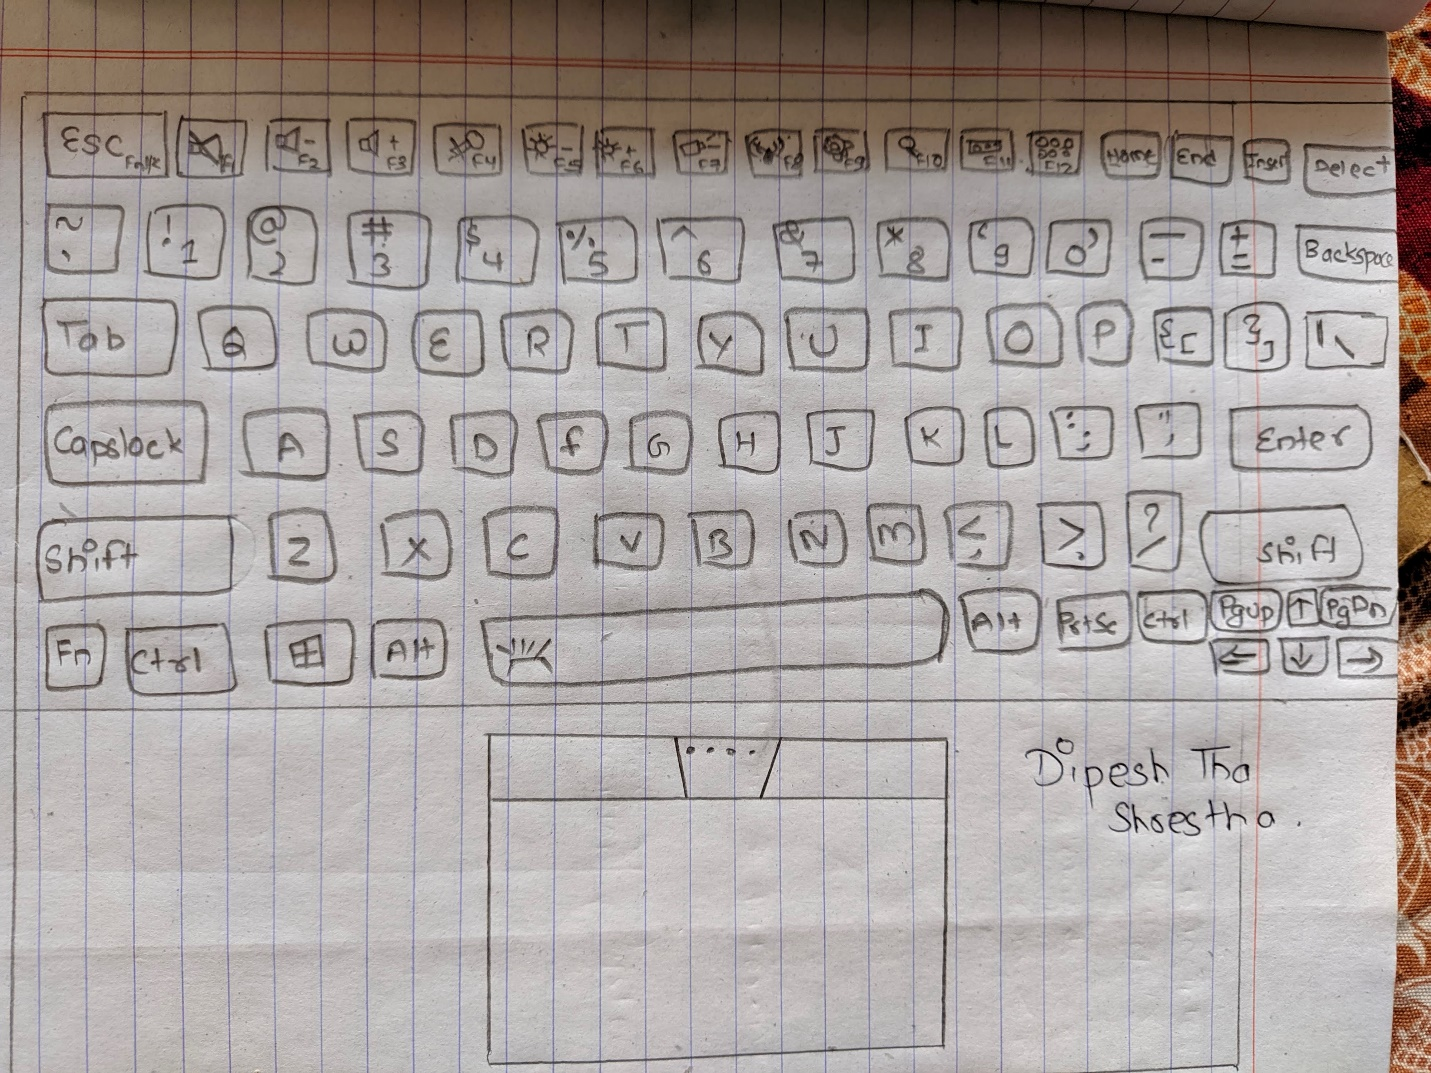 ESC FnLK F1 F2 F3 F4 F5 F6 F7 F8 F9 F10 F11 F12 Home End Inser Delect
~ ! 1 @ 2 # 3 $ 4 % 5 ^ 6 & 7 * 8 ( 9 ) 0 — - + = Backspace
Tab Q W E R T Y U I O P { [ } ] | \
Capslock A S D f G H J K L : ; " ; Enter
Shift Z X C V B N M < , > . ? / Shift
Fn Ctrl Alt Alt PrtSc Ctrl PgUp ↑ PgDn
← ↓ →
Dipesh Tha
Shrestha.